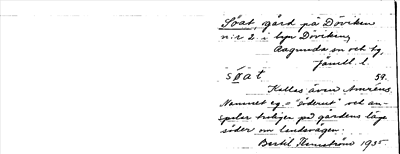 Söat, gård på Döviken
n:r 2 i byn Döviken,
Ragunda sn och tg,
Jämtl. l.
söat 59.
Kallas även Amréns.
Namnet eg = "söderut" och an-
spelar troligen på gårdens läge
söder om landsvägen.
Bertil Flemström 1935